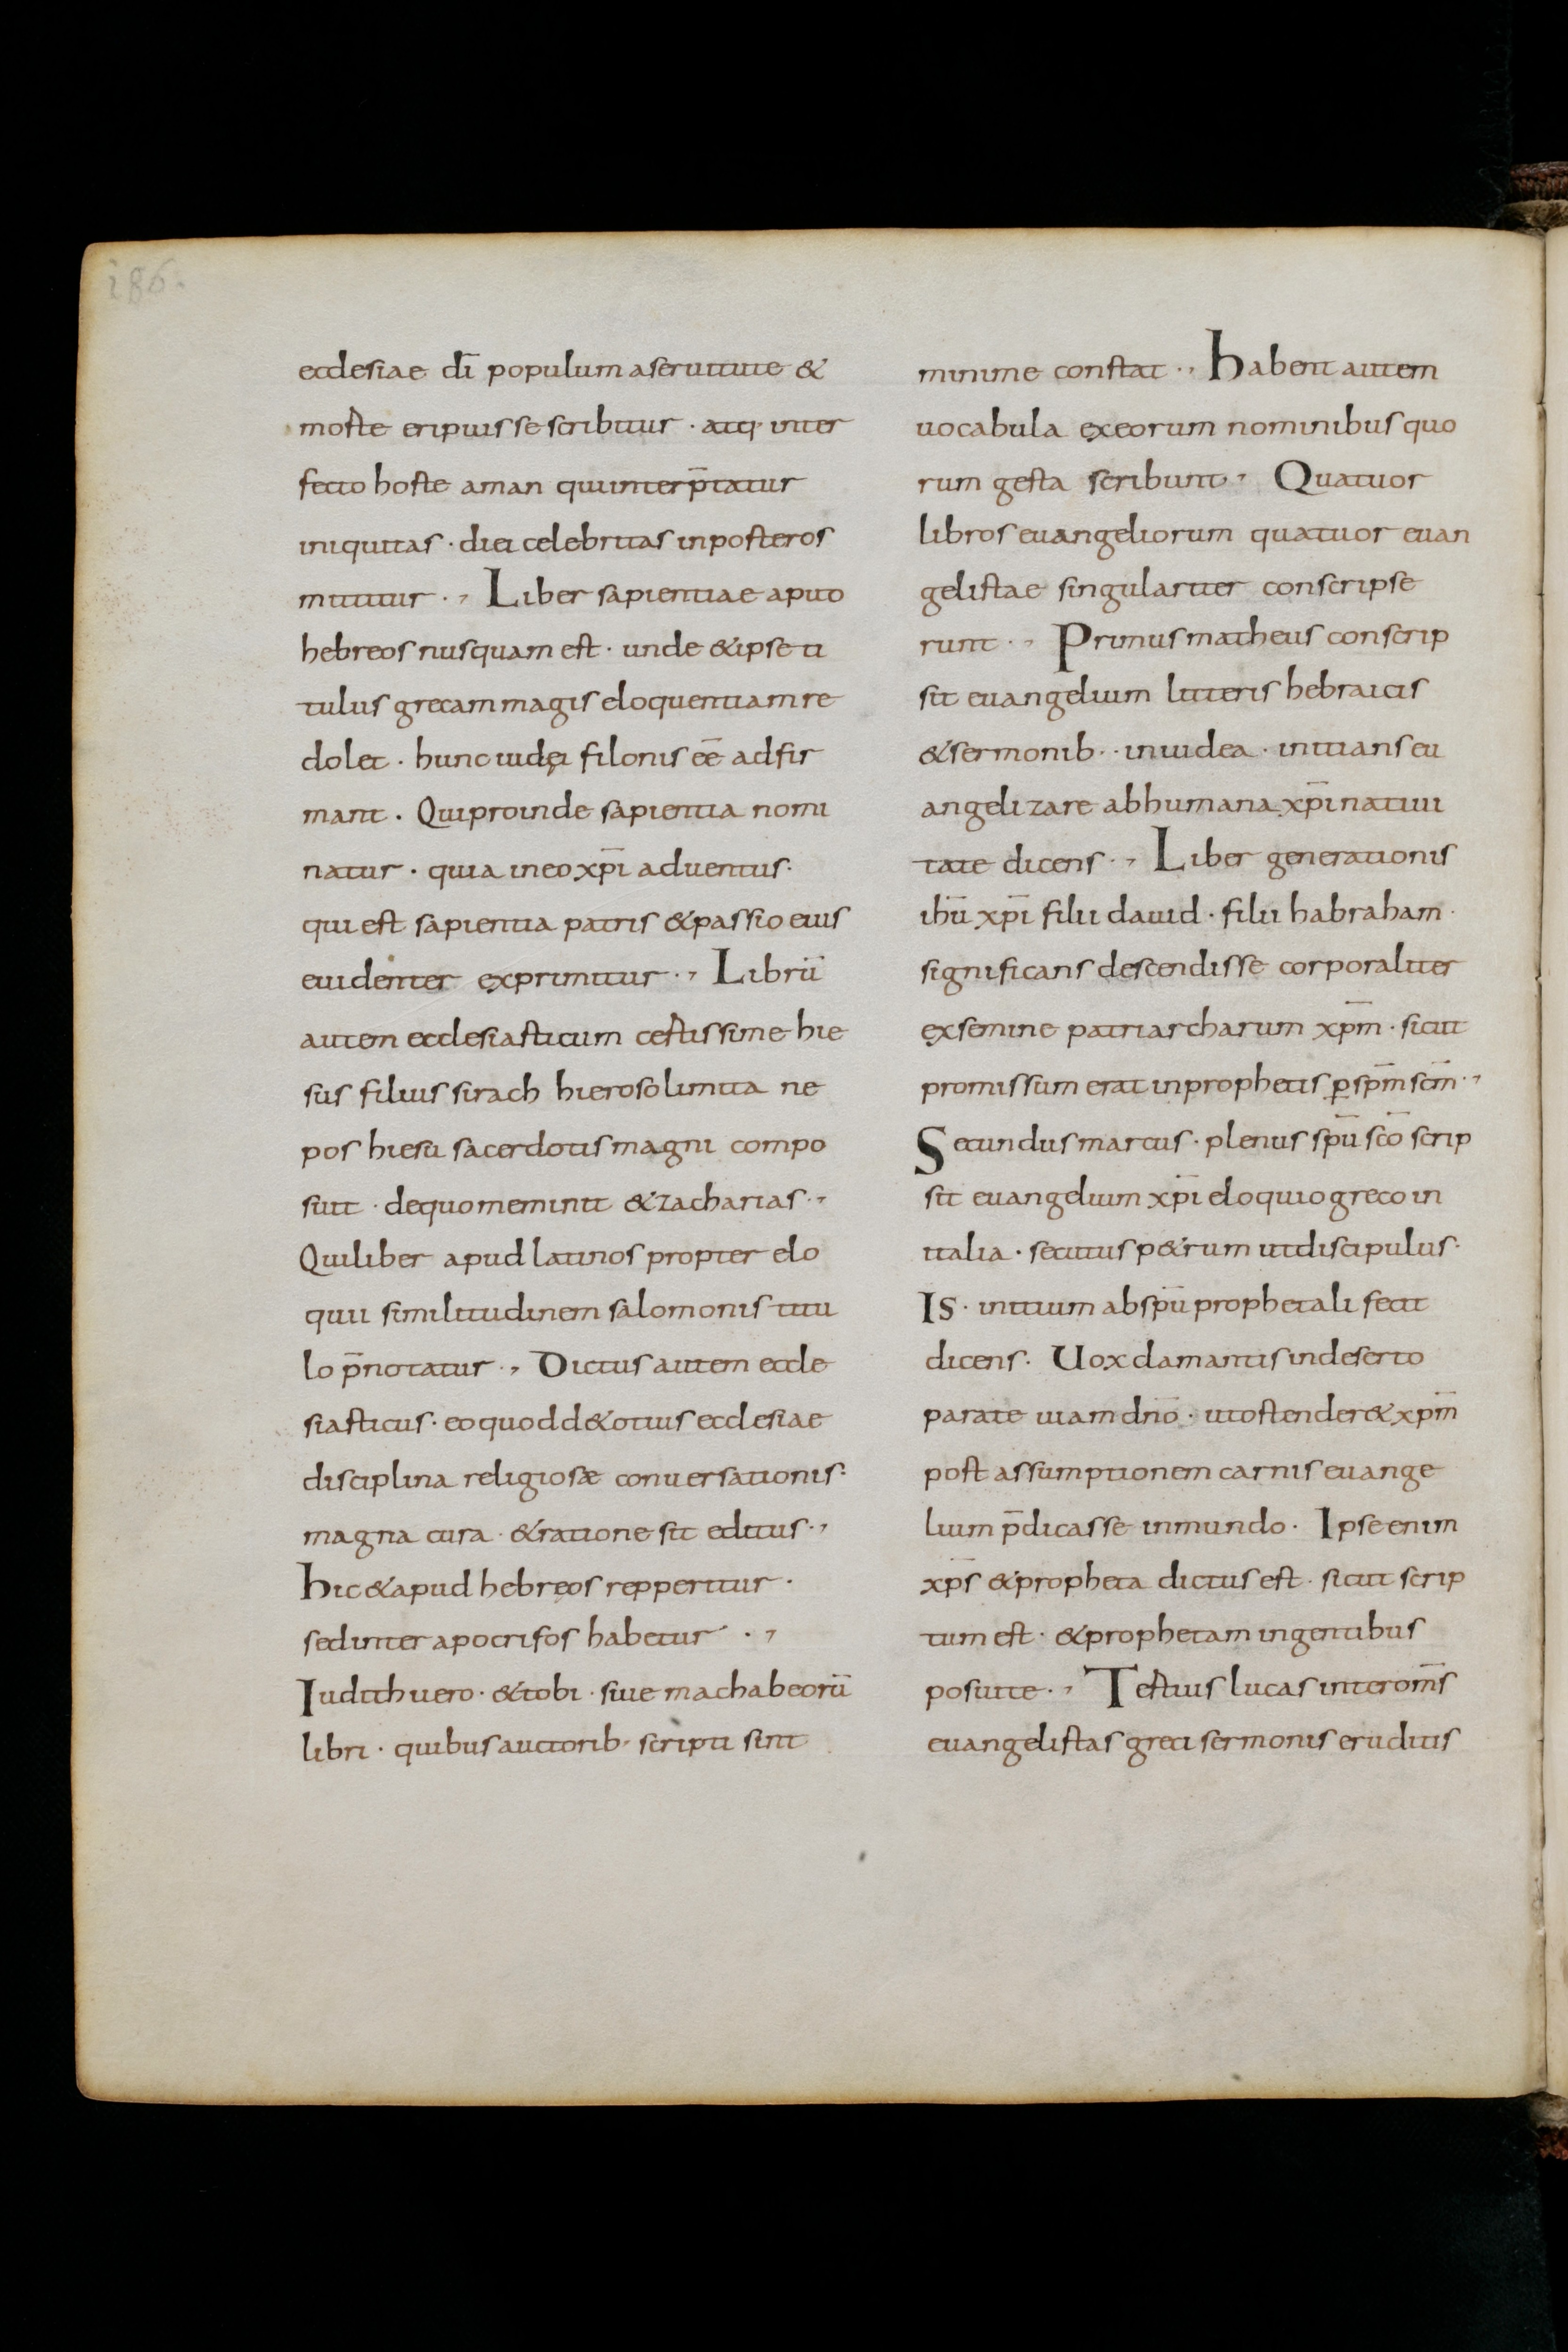 186.
ecclesiae dī populum a seruitute &
morte eripuisse scribitur · atq; inter
fecto hoste aman qui interp̄tatur
iniquitas · diei celebritas in posteros
mittitur ·, Liber sapientiae aput
hebreos nusquam est · unde & ipse ti
tulus grecam magis eloquentiam re
dolet · hunc iudęi filonis eē adfir
mant · Qui proinde sapientia nomi
natur · quia in eo xp̄i aduentus ·
qui est sapientia patris & passio eius
euidenter exprimitur ·, Librū
autem ecclesiasticum certissime hie
sus filius sirach hierosolimita ne
pos hiesu sacerdotis magni compo
suit · de quo meminit & zacharias ·,
Qui liber apud latinos propter elo
quii similitudinem salomonis titu
lo p̄notatur ·, Dictus autem eccle
siasticus · eo quod d& otius ecclesiae
disciplina religiosæ conuersationis :
magna cura · & ratione sit editus ·,
hic & apud hebreos repperitur ·
sed inter apocrifos habetur ·,
Iudith uero · & tobi · siue machabeorū
libri · quibus auctorib· scripti sint
minime constat ·, habent autem
uocabula ex eorum nominibus quo
rum gesta scribunt ·, Quatuor
libros euangeliorum quatuor euan
gelistae singulariter conscripse
runt ·, Primus matheus conscrip
sit euangelium litteris hebraicis
& sermonib· · in iudea · initians eu
angelizare ab humana xp̄i natiui
tate dicens ·, Liber generationis
ihū xp̄i filii dauid · filii habraham ·
significans descendisse corporaliter
ex semine patriarcharum xp̄m · sicut
promissum erat in prophetis ꝑ sp̄m sc̄m ·,
Secundus marcus · plenus sp̄u sc̄o scrip
sit euangelium xp̄i eloquio greco in
italia · secutus p&rum ut discipulus ·
IS · initium ab sp̄u prophetali fecit
dicens · Uox clamantis in deserto
parate uiam dn̄o · ut ostender& xp̄m
post assumptionem carnis euange
lium p̄dicasse in mundo · Ipse enim
xp̄s & propheta dictus est · sicut scrip
tum est · & prophetam in gentibus
posui te ·, Tertius lucas inter om̄s
euangelistas greci sermonis eruditis